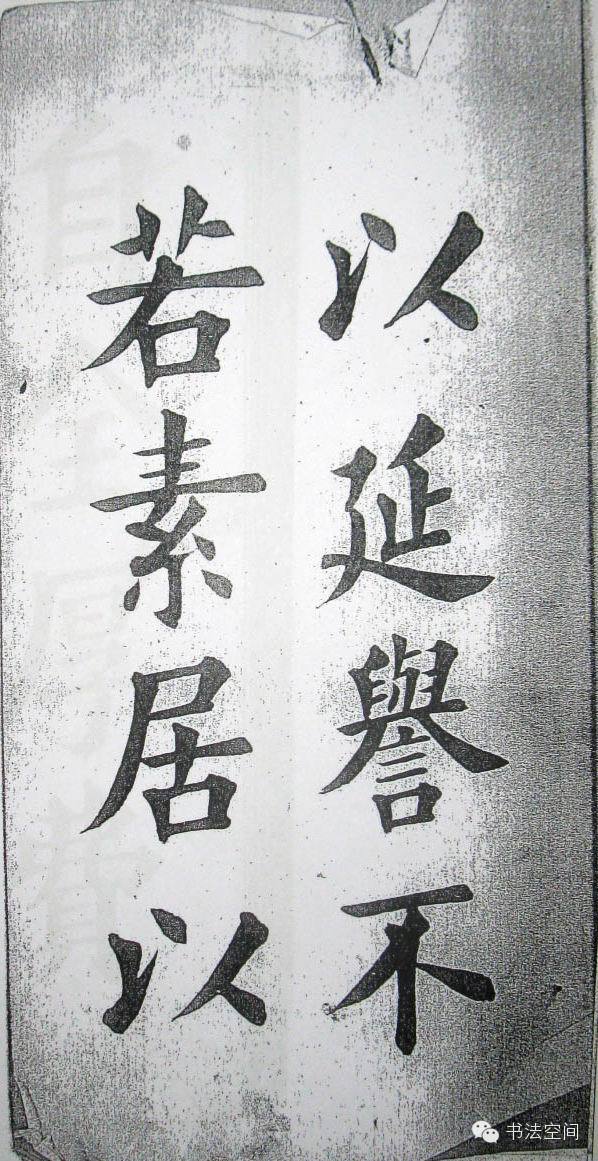 以延譽不
若素居以
书法空间